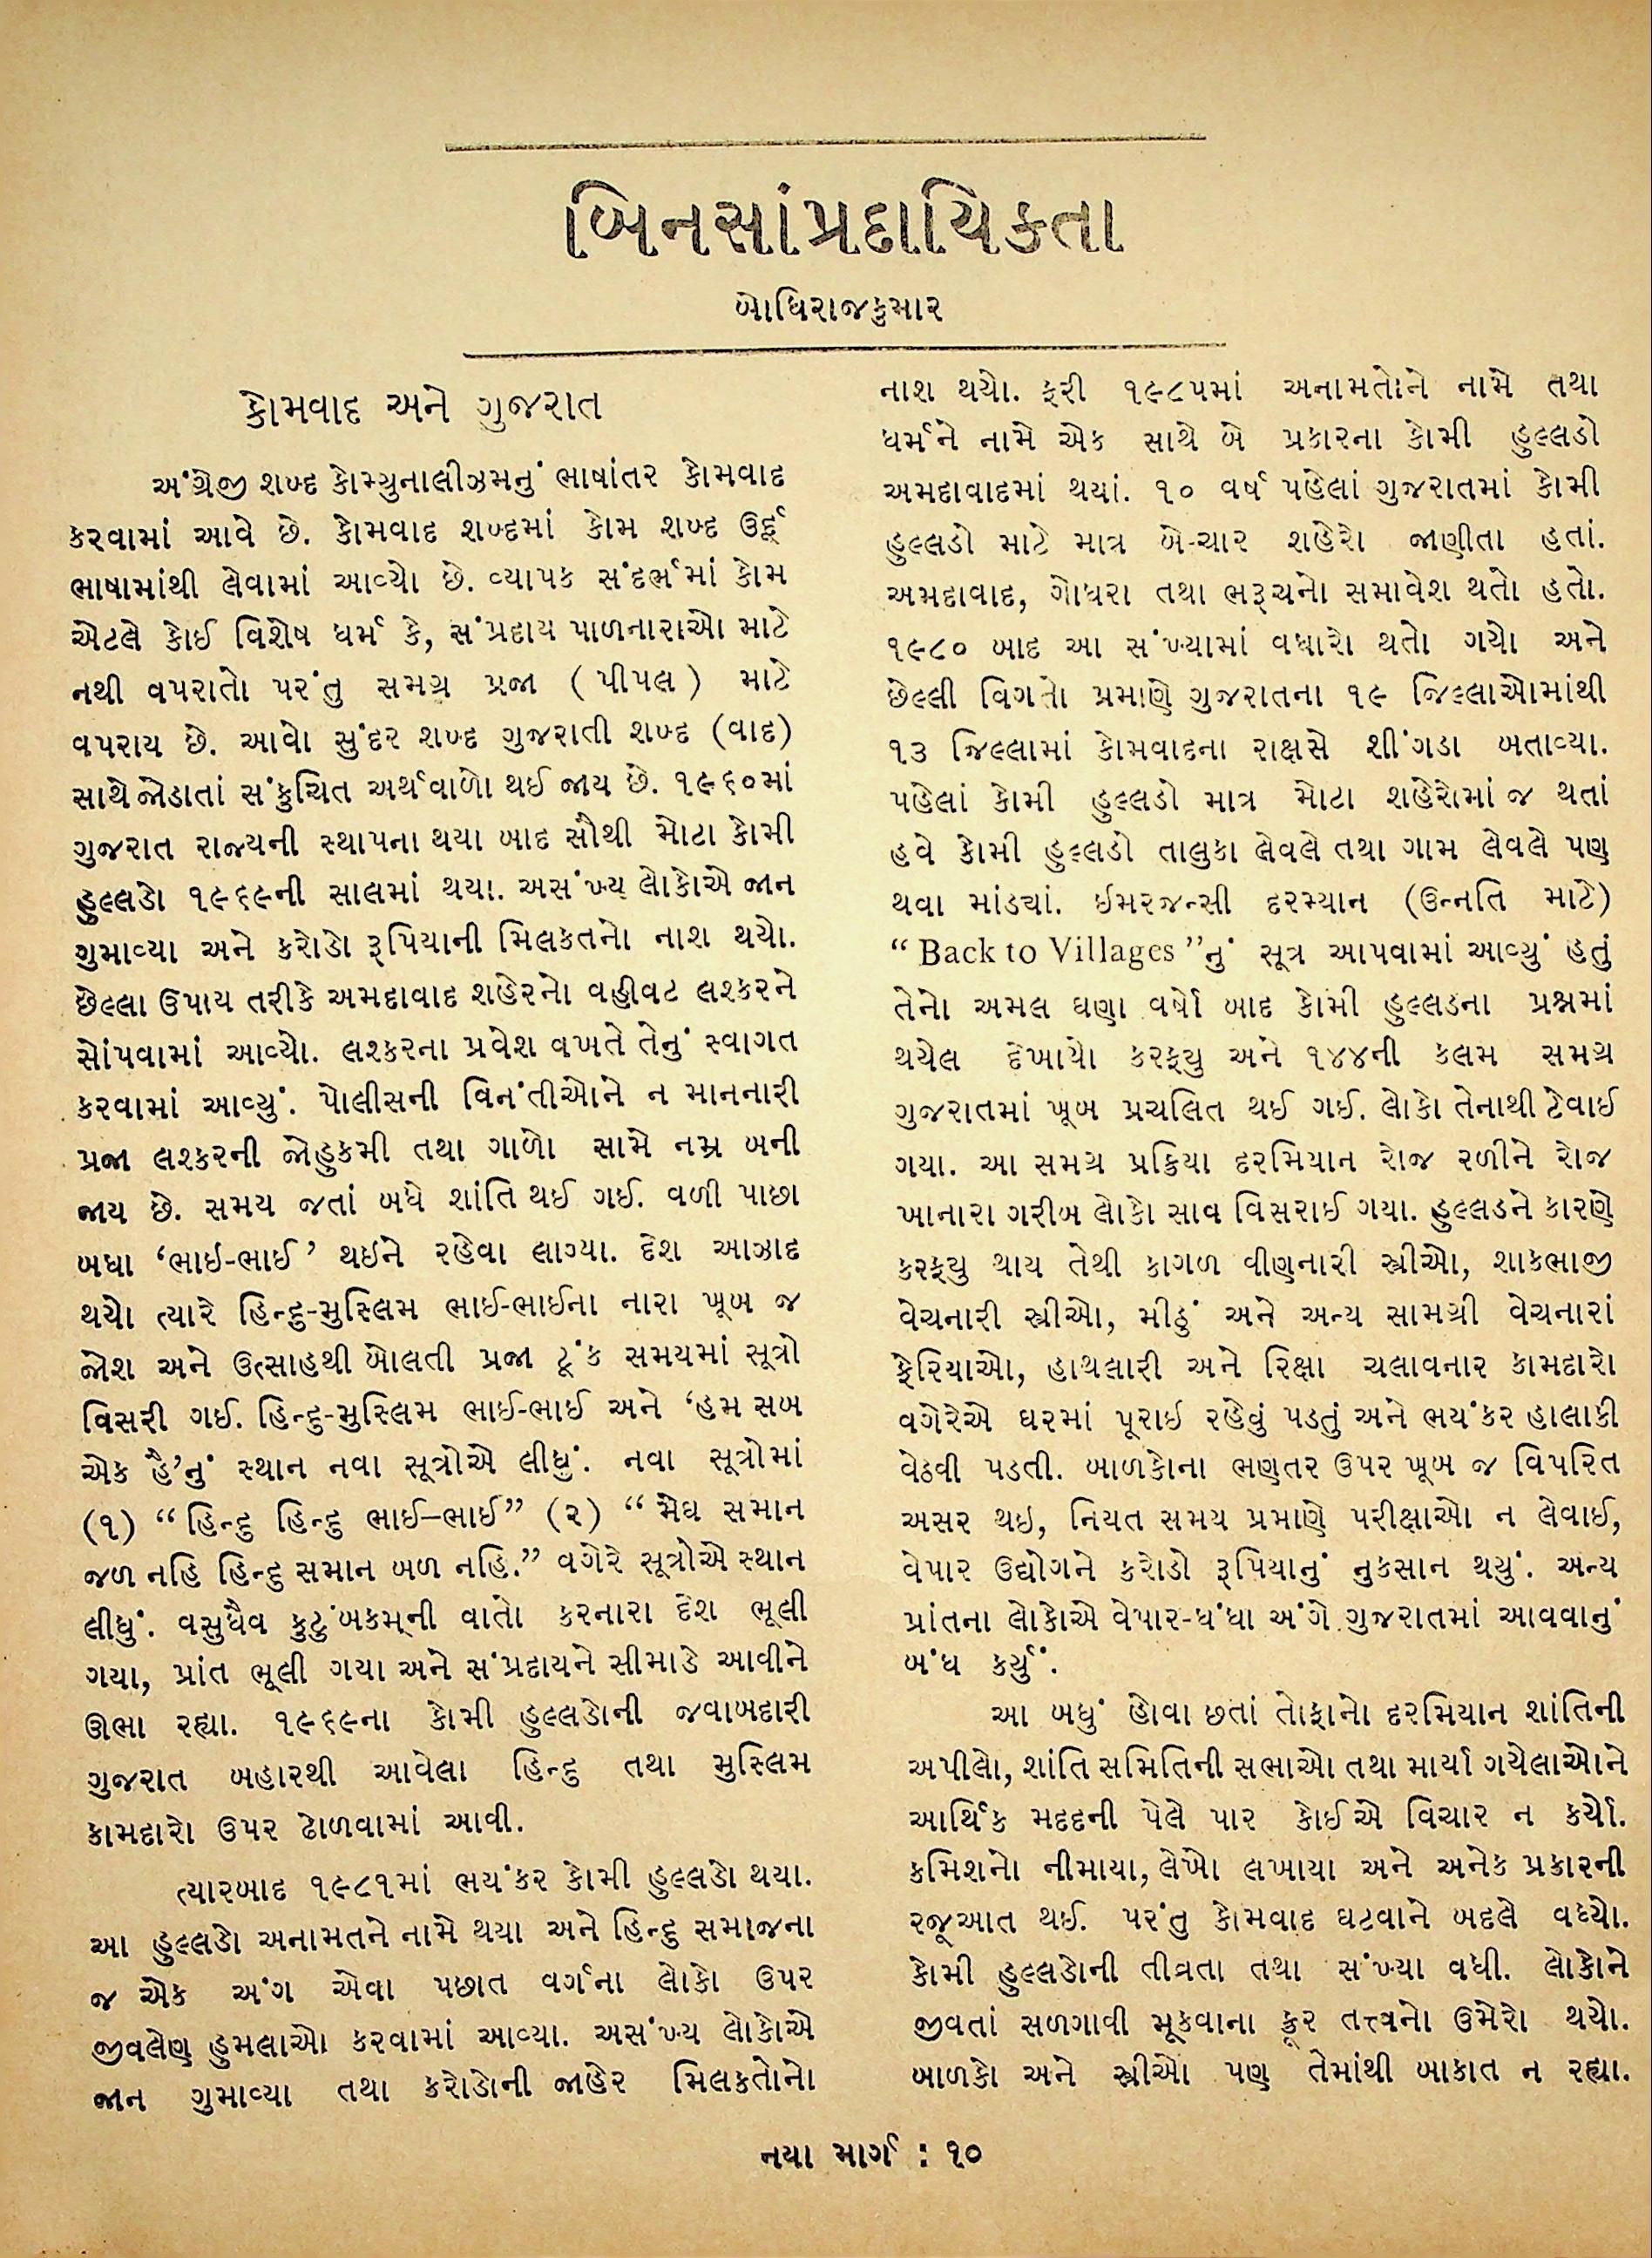 બિનસાંપ્રદાયિકતા
બોધિરાજકુમાર
કોમવાદ અને ગુજરાત
અંગ્રેજી શબ્દ કોમ્યુનાલીઝમનું ભાષાંતર કોમવાદ
કરવામાં આવે છે. કોમવાદ શબ્દમાં કોમ શબ્દ ઉર્દૂ
ભાષામાંથી લેવામાં આવ્યો છે. વ્યાપક સંદર્ભમાં કોમ
એટલે કોઈ વિશેષ ધર્મ કે, સંપ્રદાય પાળનારાઓ માટે
નથી વપરાતો પરંતુ સમગ્ર પ્રજા (પીપલ) માટે
વપરાય છે. આવો સુંદર શબ્દ ગુજરાતી શબ્દ (વાદ)
સાથે જોડાતાં સંકુચિત અર્થવાળો થઈ જાય છે. ૧૯૬૦માં
ગુજરાત રાજ્યની સ્થાપના થયા બાદ સૌથી મોટા કોમી
હુલ્લડો ૧૯૬૯ની સાલમાં થયા. અસંખ્ય લોકોએ જાન
ગુમાવ્યા અને કરોડો રૂપિયાની મિલકતનો નાશ થયો.
છેલ્લા ઉપાય તરીકે અમદાવાદ શહેરનો વહીવટ લશ્કરને
સોંપવામાં આવ્યો. લશ્કરના પ્રવેશ વખતે તેનું સ્વાગત
કરવામાં આવ્યું. પોલીસની વિનંતીઓને ન માનનારી
પ્રજા લશ્કરની જોહુકમી તથા ગાળો સામે નમ્ર બની
જાય છે. સમય જતાં બધે શાંતિ થઈ ગઈ. વળી પાછા
બધા ‘ભાઇ-ભાઈ’ થઇને રહેવા લાગ્યા. દેશ આઝાદ
થયો ત્યારે હિન્દુ-મુસ્લિમ ભાઈ-ભાઈના નારા ખૂબ જ
જોશ અને ઉત્સાહથી બોલતી પ્રજા ટૂંક સમયમાં સૂત્રો
વિસરી ગઈ. હિન્દુ-મુસ્લિમ ભાઈ-ભાઈ અને ‘હમ સબ
એક હૈ’નું સ્થાન નવા સૂત્રોએ લીધું. નવા સૂત્રોમાં
(૧) “હિન્દુ હિન્દુ ભાઈ–ભાઈ” (૨) “મેઘ સમાન
જળ નહિ હિન્દુ સમાન બળ નહિ.” વગેરે સૂત્રોએ સ્થાન
લીધું. વસુધૈવ કુટુંબકમ્‌ની વાતો કરનારા દેશ ભૂલી
ગયા, પ્રાંત ભૂલી ગયા અને સંપ્રદાયને સીમાડે આવીને
ઊભા રહ્યા. ૧૯૬૯ના કોમી હુલ્લડોની જવાબદારી
ગુજરાત બહારથી આવેલા હિન્દુ તથા મુસ્લિમ
કામદારો ઉપર ઢોળવામાં આવી.
ત્યારબાદ ૧૯૮૧માં ભયંકર કોમી હુલ્લડો થયા.
આ હુલ્લડો અનામતને નામે થયા અને હિન્દુ સમાજના
જ એક અંગ એવા પછાત વર્ગના લોકો ઉપર
જીવલેણ હુમલાઓ કરવામાં આવ્યા. અસંખ્ય લોકોએ
જાન ગુમાવ્યા તથા કરોડોની જાહેર મિલકતોનો
નાશ થયો. ફરી ૧૯૮૫માં અનામતોને નામે તથા
ધર્મને નામે એક સાથે બે પ્રકારના કોમી હુલ્લડો
અમદાવાદમાં થયાં. ૧૦ વર્ષ પહેલાં ગુજરાતમાં કોમી
હુલ્લડો માટે માત્ર બે-ચાર શહેરો જાણીતા હતાં.
અમદાવાદ, ગોધરા તથા ભરૂચનો સમાવેશ થતો હતો.
૧૯૮૦ બાદ આ સંખ્યામાં વધારો થતો ગયો અને
છેલ્લી વિગતો પ્રમાણે ગુજરાતના ૧૯ જિલ્લાઓમાંથી
૧૩ જિલ્લામાં કોમવાદના રાક્ષસે શીંગડા બતાવ્યા.
પહેલાં કોમી હુલ્લડો માત્ર મોટા શહેરોમાં જ થતાં
હવે કોમી હુલ્લડો તાલુકા લેવલે તથા ગામ લેવલે પણ
થવા માંડ્યાં. ઈમરજન્સી દરમ્યાન (ઉન્નતિ માટે)
“Back to Villages”નું સૂત્ર આપવામાં આવ્યું હતું
તેનો અમલ ઘણા વર્ષો બાદ કોમી હુલ્લડના પ્રશ્નમાં
થયેલ દેખાયો કરફ્યુ અને ૧૪૪ની કલમ સમગ્ર
ગુજરાતમાં ખૂબ પ્રચલિત થઈ ગઈ. લોકો તેનાથી ટેવાઈ
ગયા. આ સમગ્ર પ્રક્રિયા દરમિયાન રોજ રળીને રોજ
ખાનારા ગરીબ લોકો સાવ વિસરાઈ ગયા. હુલ્લડને કારણે
કરફ્યુ થાય તેથી કાગળ વીણનારી સ્ત્રીઓ, શાકભાજી
વેચનારી સ્ત્રીઓ, મીઠું અને અન્ય સામગ્રી વેચનારાં
ફેરિયાઓ, હાથલારી અને રિક્ષા ચલાવનાર કામદારો
વગેરેએ ઘરમાં પૂરાઇ રહેવું પડતું અને ભયંકર હાલાકી
વેઠવી પડતી. બાળકોના ભણતર ઉપર ખૂબ જ વિપરિત
અસર થઇ, નિયત સમય પ્રમાણે પરીક્ષાઓ ન લેવાઈ,
વેપાર ઉદ્યોગને કરોડો રૂપિયાનું નુકસાન થયું. અન્ય
પ્રાંતના લોકોએ વેપાર-ધંધા અંગે ગુજરાતમાં આવવાનું
બંધ કર્યું.
આ બધું હોવા છતાં તોફાનો દરમિયાન શાંતિની
અપીલો, શાંતિ સમિતિની સભાઓ તથા માર્યા ગયેલાઓને
આર્થિક મદદની પેલે પાર કોઈએ વિચાર ન કર્યો.
કમિશનો નીમાયા, લેખો લખાયા અને અનેક પ્રકારની
રજૂઆત થઈ. પરંતુ કોમવાદ ઘટવાને બદલે વધ્યો.
કોમી હુલ્લડોની તીવ્રતા તથા સંખ્યા વધી. લોકોને
જીવતાં સળગાવી મૂકવાના ક્રૂર તત્ત્વનો ઉમેરો થયો.
બાળકો અને સ્ત્રીઓ પણ તેમાંથી બાકાત ન રહ્યા.
નયા માર્ગ : ૧૦